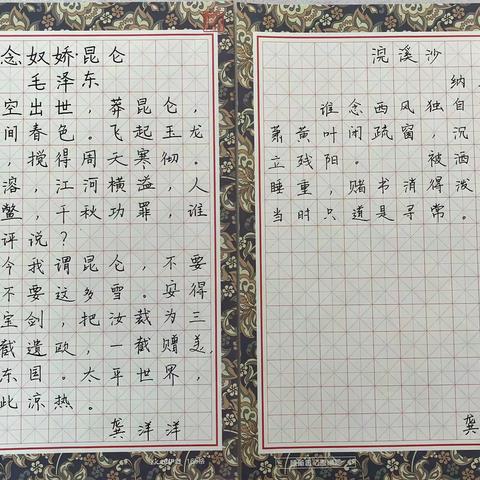 念奴娇·昆仑
毛泽东
空出世，莽昆仑，
间春色。飞起玉龙
，搅得周天寒彻。
溶，江河横溢，人
鳖，千秋功罪，谁
评说？
今我谓昆仑，不要
不要这多雪。安得
宝剑，把汝裁为三
截遗欧，一截赠美，
东国。太平世界，
此凉热。
龚洋洋
浣溪沙
纳
谁念西风独自
萧黄叶闭疏窗，沉
立残阳。 被酒
睡重，赌书消得泼
当时只道是寻常。
龚